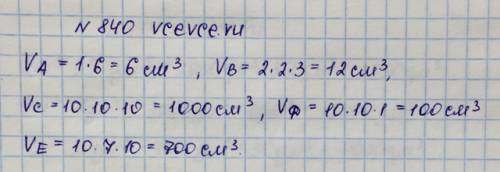 N 840 vcevce.ru
VА = 1·6 = 6 см³ , VВ = 2·2·3 = 12 см³,
VС = 10·10·10 = 1000 см³ , VФ = 10·10·1 = 100 см³
VЕ = 10·7·10 = 700 см³.